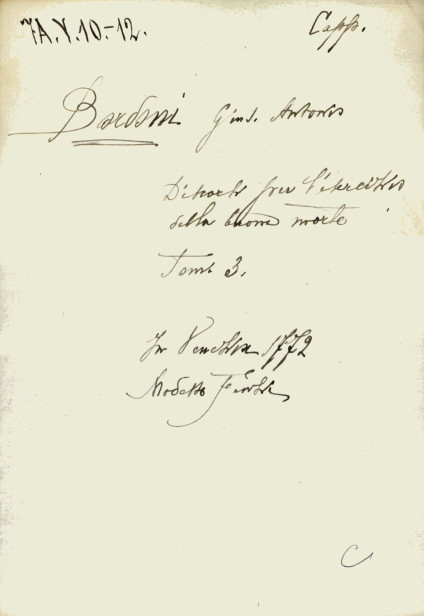 7A.V.10.-12.
Capp.
Bordoni Gius. Antonio
Discorsi per l'esercizio
della buona morte
Tomi 3.
In Venezia 1772
Modesto Fenzo
C